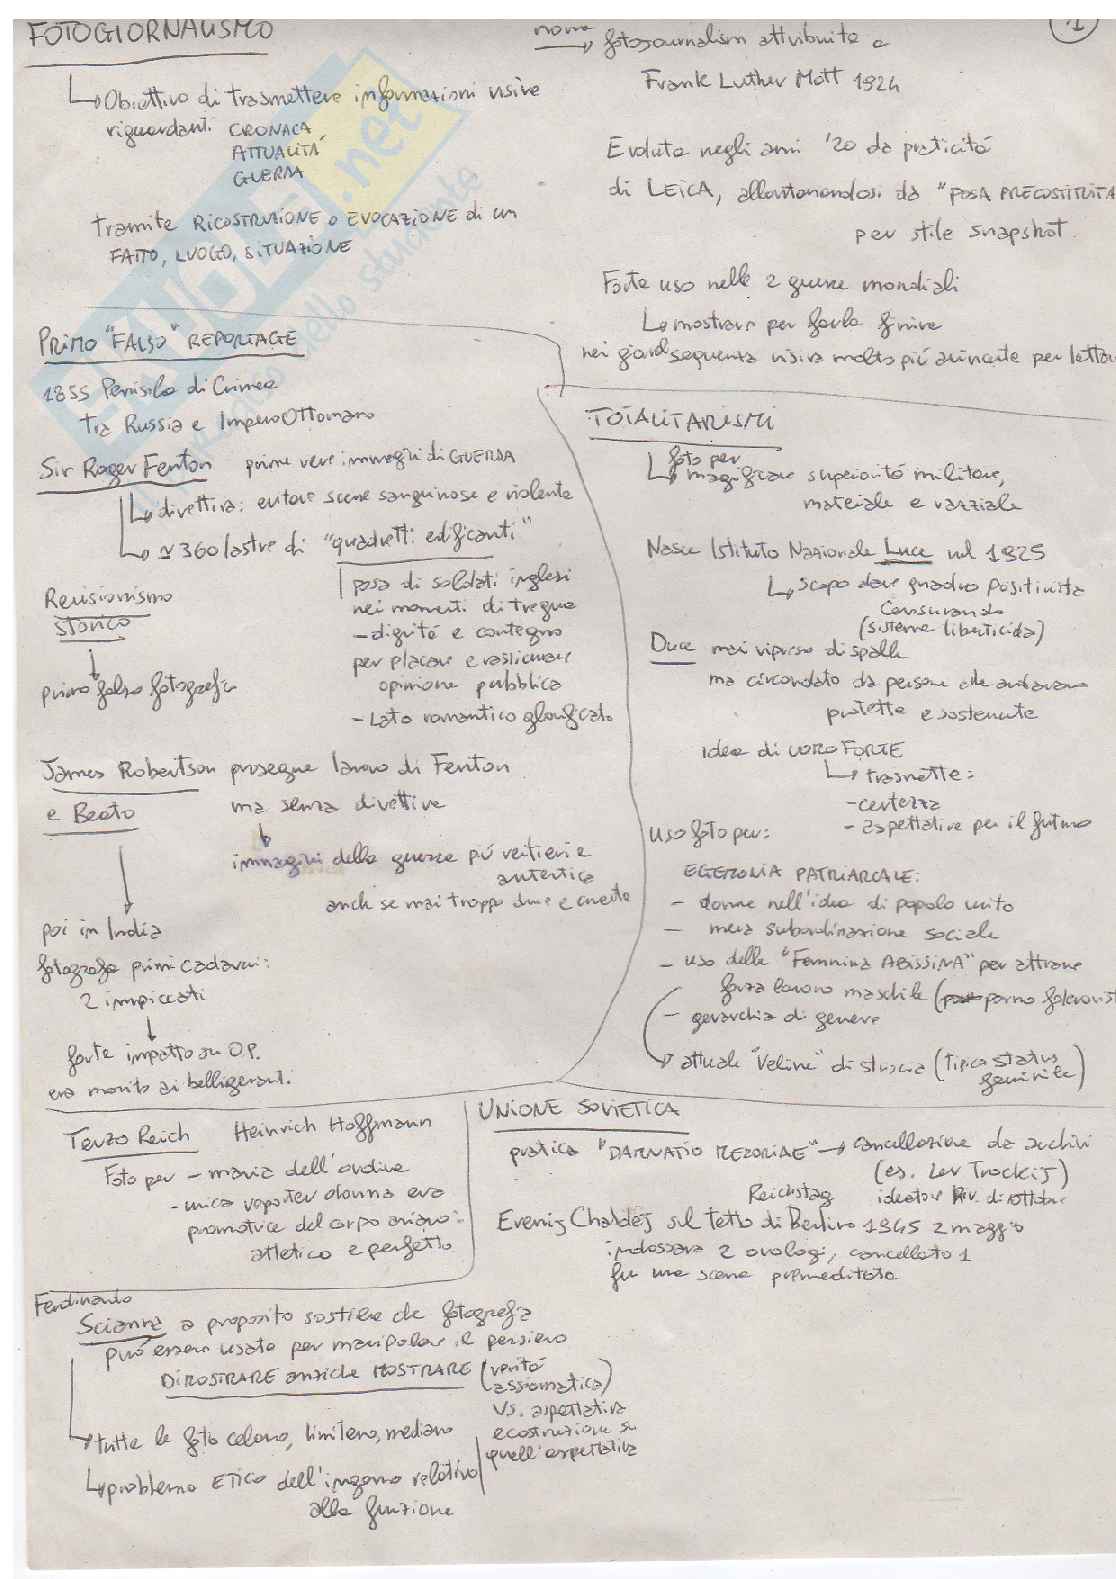 FOTOGIORNALISMO
↳ Obiettivo di trasmettere informazioni visive
riguardanti CRONACA
ATTUALITÁ
GUERRA
tramite RICOSTRUZIONE o EVOCAZIONE di un
FATTO, LUOGO, SITUAZIONE
1
nome → fotojournalism attribuite a
Frank Luther Mott 1924
Evoluto negli anni '20 da praticitá
di LEICA, allontanandosi da "POSA PRECOSTITUITA
per stile snapshot.
Forte uso nelle 2 guerre mondiali
↳ mostrare per farla finire
nei giornali sequenza visiva molto piú avvincente per lettor
PRIMO "FALSO" REPORTAGE
1855 Penisola di Crimea
tra Russia e Impero Ottomano
Sir Roger Fenton prime vere immagini di GUERRA
↳ direttiva: evitare scene sanguinose e violente
↳ ≃ 360 lastre di "quadretti edificanti"
posa di soldati inglesi
nei momenti di tregua
- dignità e contegno
per placare e rassicurare
opinione pubblica
- Lato romantico glorificato
Revisionismo
storico
↓
primo falso fotografico
James Robertson prosegue lavoro di Fenton
e Beato ma senza direttive
↓
immagini della guerra piú veritieri e
autentica
anch se mai troppo dure e cruente
↓
poi in India
fotografa primi cadaveri:
2 impiccati
↓
forte impatto su O.P.
era monito ai belligeranti.
TOTALITARISMI
↳ foto per
magnificare superioritá militare,
materiale e razziale
Nasce Istituto Nazionale Luce nel 1925
↳ scopo dare quadro positivita
censurando
(sistema liberticida)
Duce mai ripreso di spalle
ma circondato da persone che andavano
protette e sostenute
idea di UOMO FORTE
↳ trasmette:
- certezza
- aspettative per il futuro
uso foto per:
EGEMONIA PATRIARCALE:
- donne nell'idea di popolo unito
- mera subordinazione sociale
- uso della "Femmina ABISSINA" per attrarre
forza lavoro maschile (porno
- gerarchia di genere
→ attuale "Veline" di striscia (tipico status
femminile)
Terzo Reich Heinrich Hoffmann
Foto per - mania dell'ordine
- unica reporter donna era
promotrice del corpo ariano:
atletico e perfetto
UNIONE SOVIETICA
pratica "DAMNATIO MEMORIAE" → cancellazione da archivi
(es. Lev Trockij)
ideatore Riv. di ottobre
Reichstag
Evenij Chaldej sul tetto di Berlino 1945 2 maggio
indossava 2 orologi, cancellato 1
fu una scena premeditata
Ferdinando
Scianna a proposito sostiene che fotografia
può essere usata per manipolare il pensiero
DIMOSTRARE anziche MOSTRARE (verità
assiomatica)
vs. aspettativa
e costruzione su
quell'aspettativa
↳ tutte le foto celano, limitano, mediano
↳ problema ETICO dell'inganno relativo
alla funzione